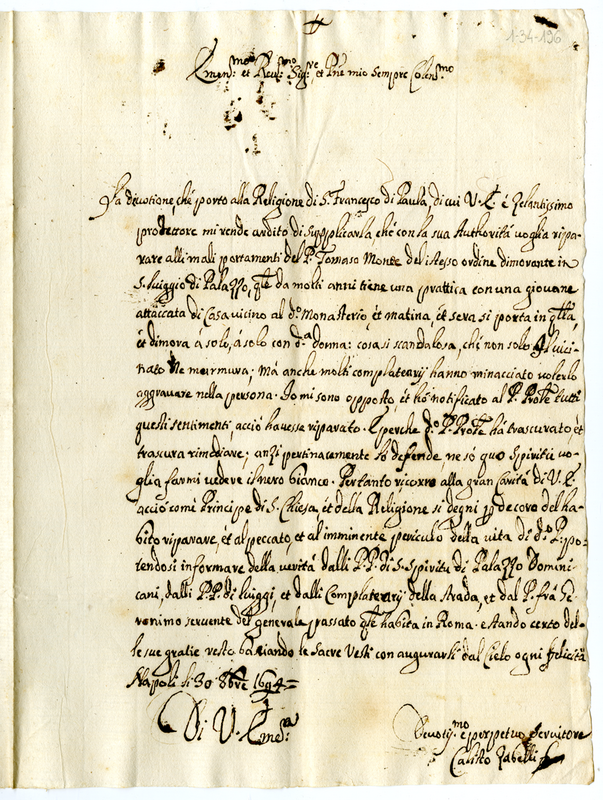 1-34-196
Emin:mo et Reu:mo Sig:re, et Pne mio sempre Colen:mo
La diuotione, che porto alla Religione di S. Francesco di Paula, di cui V. E. é Zelantissimo
prodettore mi rende ardito di supplicarla, che con la sua Authoritá uoglia ripa-
rare alli mali portamenti del P. Tomaso Monte del istesso ordine dimorante in
S. Luiggio di Palazzo, qle da molti anni tiene una prattica con una giouane
attaccata di Casa uicino al do Monasterio, et matina, et sera si porta in qlla,
et dimora á solo, á solo con da donna: cosa si scandalosa, ché non solo il uici-
nato ne mormura, má anche molti complatearij hanno minacciato uolerlo
aggrauare nella persona. Io mi sono opposto, et hó notificato al P. Prole tutti
questi sentimenti, acció hauesse riparato. E perche do P. Prole há trascurato, et
trascura rimediare; anzi pertinacemente lo defende, ne só quo Spiritu uo-
glia farmi uedere il nero bianco. Pertanto ricorro alla gran Caritá di V. E.
acció comé Principe di S. Chiesa, et della Religione si degni p decoro del ha-
bito riparare, et al peccato, et al imminente periculo della uita di do P. po-
tendosi informare della ueritá dalli P.P. di S. Spiritu di Palazzo Domini-
cani, dalli P.P. di Luiggi, et dalli Complatearij della strada, et dal P. frá Ge-
ronimo seruente del generale passato qle habita in Roma. e stando certo del-
le sue gratie resto baciando le Sacre Vesti con augurarli dal Cielo ogni felicitá
Napoli li 30 8bre 1694
Di V. Emz:a
Deuotis:mo e perpetuo seruitore
Calisto